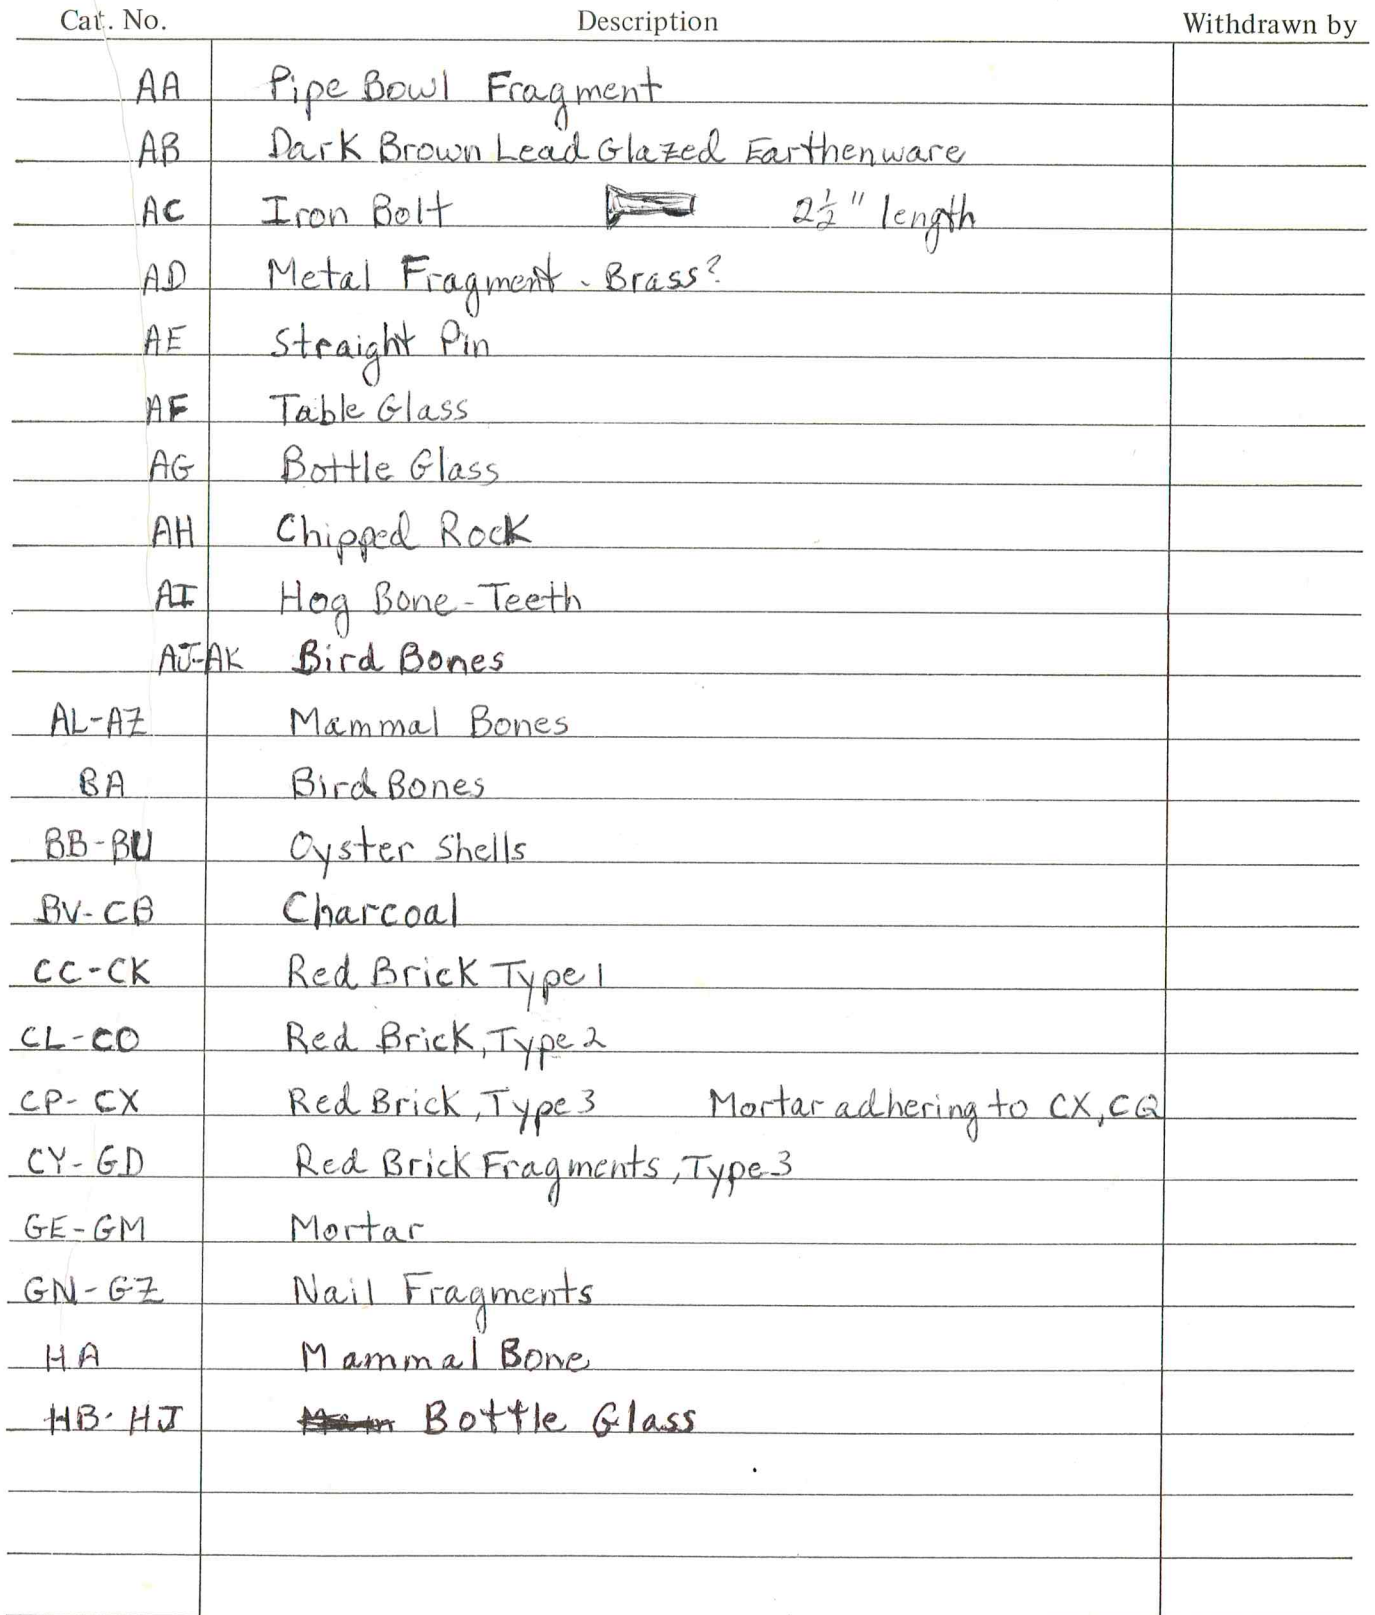 Cat. No. Description Withdrawn by
AA Pipe Bowl Fragment
AB Dark Brown Lead Glazed Earthenware
AC Iron Bolt 2½" length
AD Metal Fragment - Brass?
AE Straight Pin
AF Table Glass
AG Bottle Glass
AH Chipped Rock
AI Hog Bone - Teeth
AJ-AK Bird Bones
AL-AZ Mammal Bones
BA Bird Bones
BB-BU Oyster Shells
BV-CB Charcoal
CC-CK Red Brick Type 1
CL-CO Red Brick, Type 2
CP-CX Red Brick, Type 3 Mortar adhering to CX, CQ
CY-GD Red Brick Fragments, Type 3
GE-GM Mortar
GN-GZ Nail Fragments
HA Mammal Bone
HB-HJ Bottle Glass